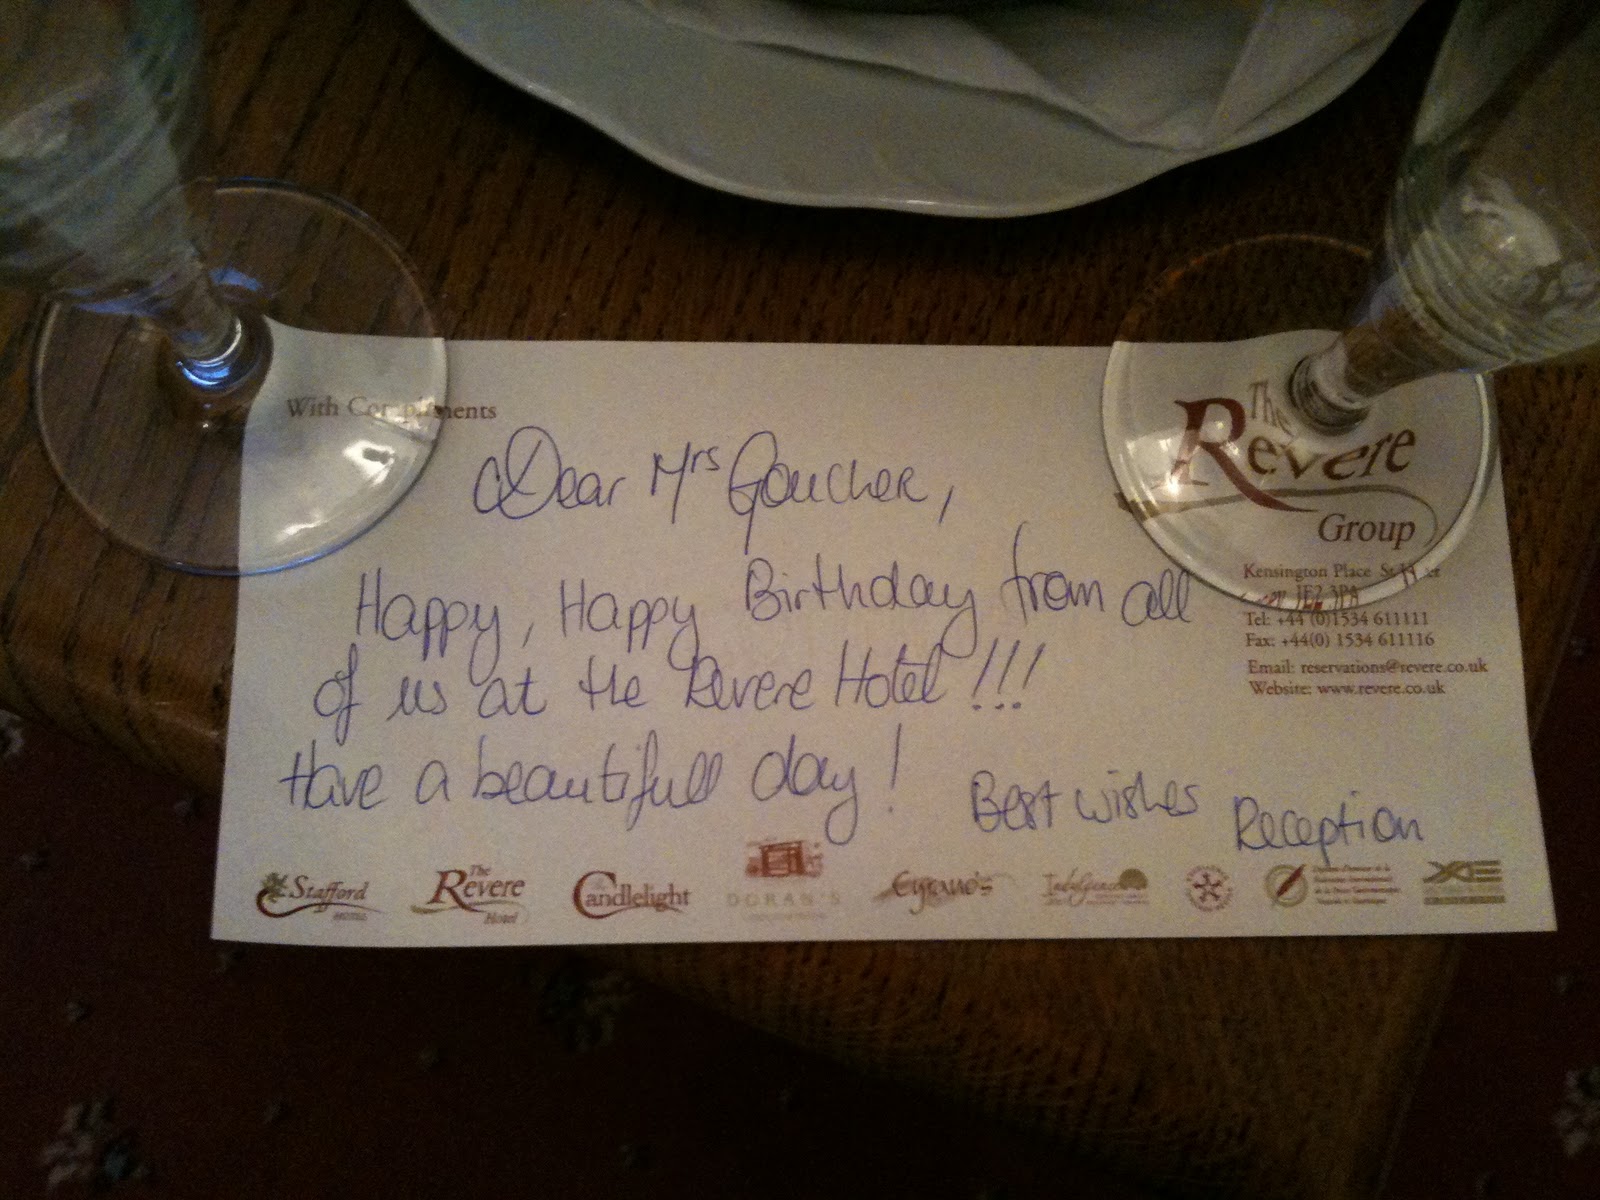 With Compliments
The
Revere
Group
Dear Mrs Goucher,
Happy, Happy Birthday from all
of us at the Revere Hotel!!!
Have a beautifull day!
Best wishes Reception
Kensington Place
JE2 3PA
Tel: +44 (0)1534 611111
Fax: +44(0) 1534 611116
Email: reservations@revere.co.uk
Website: www.revere.co.uk
Stafford
HOTEL
The
Revere
Hotel
Candlelight
DORAN'S
Cyrano's
Indulgence